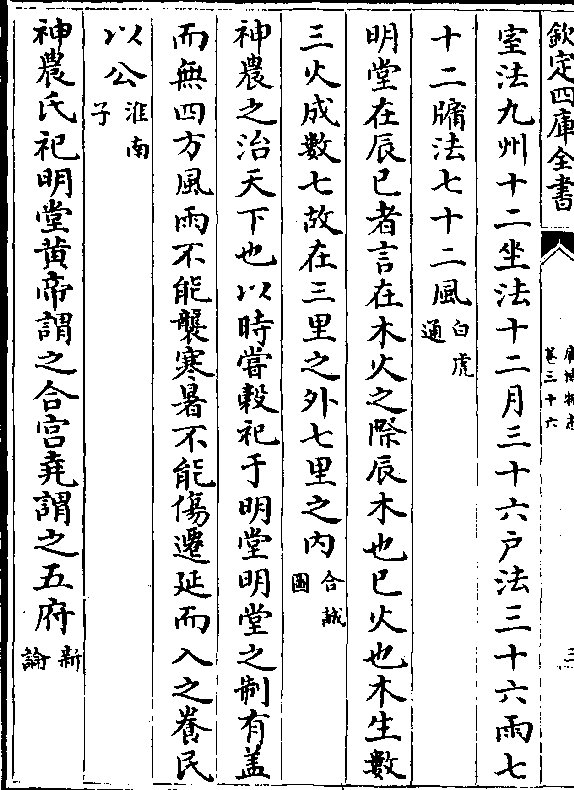 欽定四庫全書
廣博物志
卷三十六
三
室法九州十二坐法十二月三十六戶法三十六雨七
十二牖法七十二風白虎通
明堂在辰巳者言在木火之際辰木也巳火也木生數
三火成數七故在三里之外七里之內合誠圖
神農之治天下也以時嘗穀祀于明堂明堂之制有盖
而無四方風雨不能襲寒暑不能傷遷延而入之養民
以公淮南子
神農氏祀明堂黄帝謂之合宫堯謂之五府新論